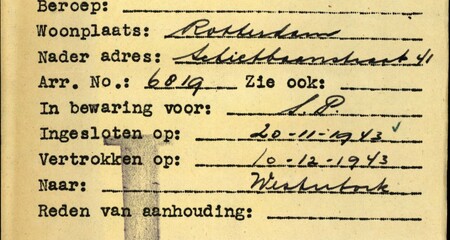 Beroep:
Woonplaats: Rotterdam
Nader adres: Schietbaanstraat 41
Arr. No.: 6819 Zie ook:
In bewaring voor: S.P.
Ingesloten op: 20-11-1943
Vertrokken op: 10-12-1943
Naar: Westerbork
Reden van aanhouding: